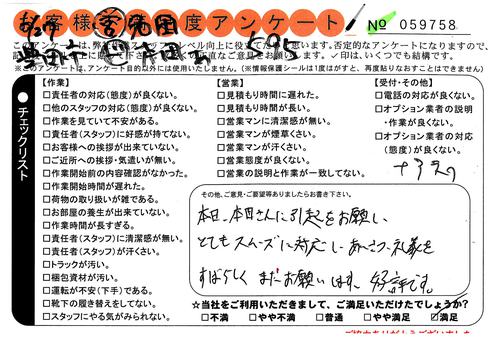 お客様 満足度アンケート
№ 059758
このアンケートは、弊社
※このアンケートは、アンケート目的以外には使用いたしません。(※情報保護シールは1度はがすと、再度貼りなおすことはできません。)
チェックリスト
【作業】
□責任者の対応(態度)が良くない。
□他のスタッフの対応(態度)が良くない。
□作業を見ていて不安がある。
□責任者(スタッフ)に好感が持てない。
□お客様への挨拶が出来ていない。
□ご近所への挨拶・気遣いが無い。
□作業開始前の内容確認がなかった。
□作業開始時間が遅れた。
□荷物の取り扱いが雑である。
□お部屋の養生が出来ていない。
□作業時間が長すぎる。
□責任者(スタッフ)に清潔感が無い。
□責任者(スタッフ)が汗くさい。
□トラックが汚い。
□梱包資材が汚い。
□運転が不安(下手)である。
□靴下の履き替えをしてない。
□スタッフにやる気がみられない。
【営業】
□見積もり時間に遅れた。
□見積もり時間が長い。
□営業マンに清潔感が無い。
□営業マンが煙草くさい。
□営業マンが汗くさい。
□営業態度が良くない。
□営業の説明と作業が一致してない。
【受付・その他】
□電話の対応が良くない。
□オプション業者の説明
・作業が良くない。
□オプション業者の対応
(態度)が良くない。
その他、ご意見・ご要望等ありましたらお書き下さい。
本日、本田さんに引越をお願いし、
とてもスムーズに対応し、あいさつ、礼義を
すばらしく またお願いします。 好評です。
☆当社をご利用いただきまして、ご満足いただけたでしょうか?
□不満 □やや不満 □普通 □やや満足 ☑満足